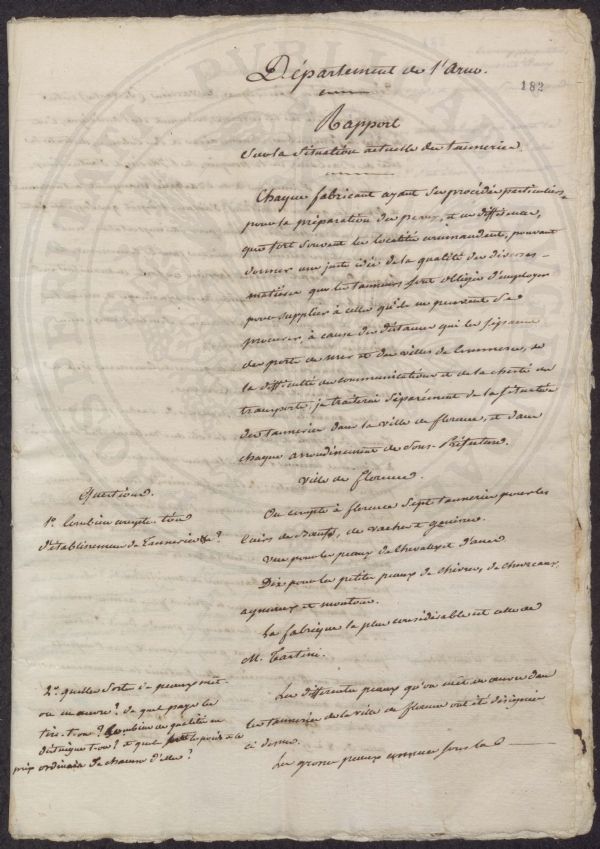 Département de l'Arno.
182
Rapport
Sur la Situation actuelle des tanneries.
Chaque fabricant ayant ses procédés particuliers
pour la préparation des peaux, et ces différences,
que fort souvent les localités commandent, pouvant
donner une juste idée de la qualité des diverses
matières que les tanneurs sont obligés d'employer
pour suppléer à celles qu'ils ne peuvent se
procurer, à cause des distances qui les séparent
des ports de mer et des villes de Commerce, de
la difficulté des communications et de la cherté des
transports; je traiterai séparément de la situation
des tanneries dans la ville de florence, et dans
chaque arrondissement de Sous-Préfecture.
Ville de florence.
Questions.
1º Combien compte-t-on
d'établissemens de Tanneries &ª?
On compte à florence Sept tanneries pour les
Cuirs de Bœufs, de vaches et genisses.
Une pour les peaux de Chevaux et d'anes.
Dix pour les petites peaux de chèvres, de chevreaux,
agneaux et moutons.
La fabrique la plus considérable est celle de
M. Tartini.
2º quelles Sortes de peaux met-
on en œuvre? de quel pays les
tire-t-on? Combien de qualités en
distingue-t-on? et quel est le poids et le
prix ordinaire de chacune d'elles?
Les différentes peaux qu'on met en œuvre dans
les tanneries de la ville de florence ont été désignées
ci dessus.
Les grosses peaux connues sous la d